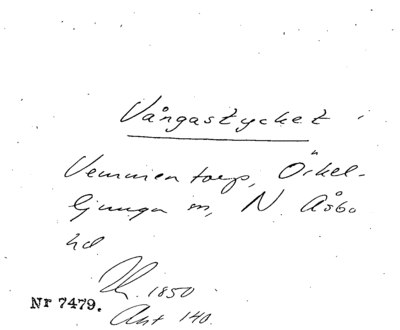 Vångastycket i
Vemmentorp, Örkel-
ljunga sn, N. Åsbo
hd
1850
Nr 7479.
Akt 140.